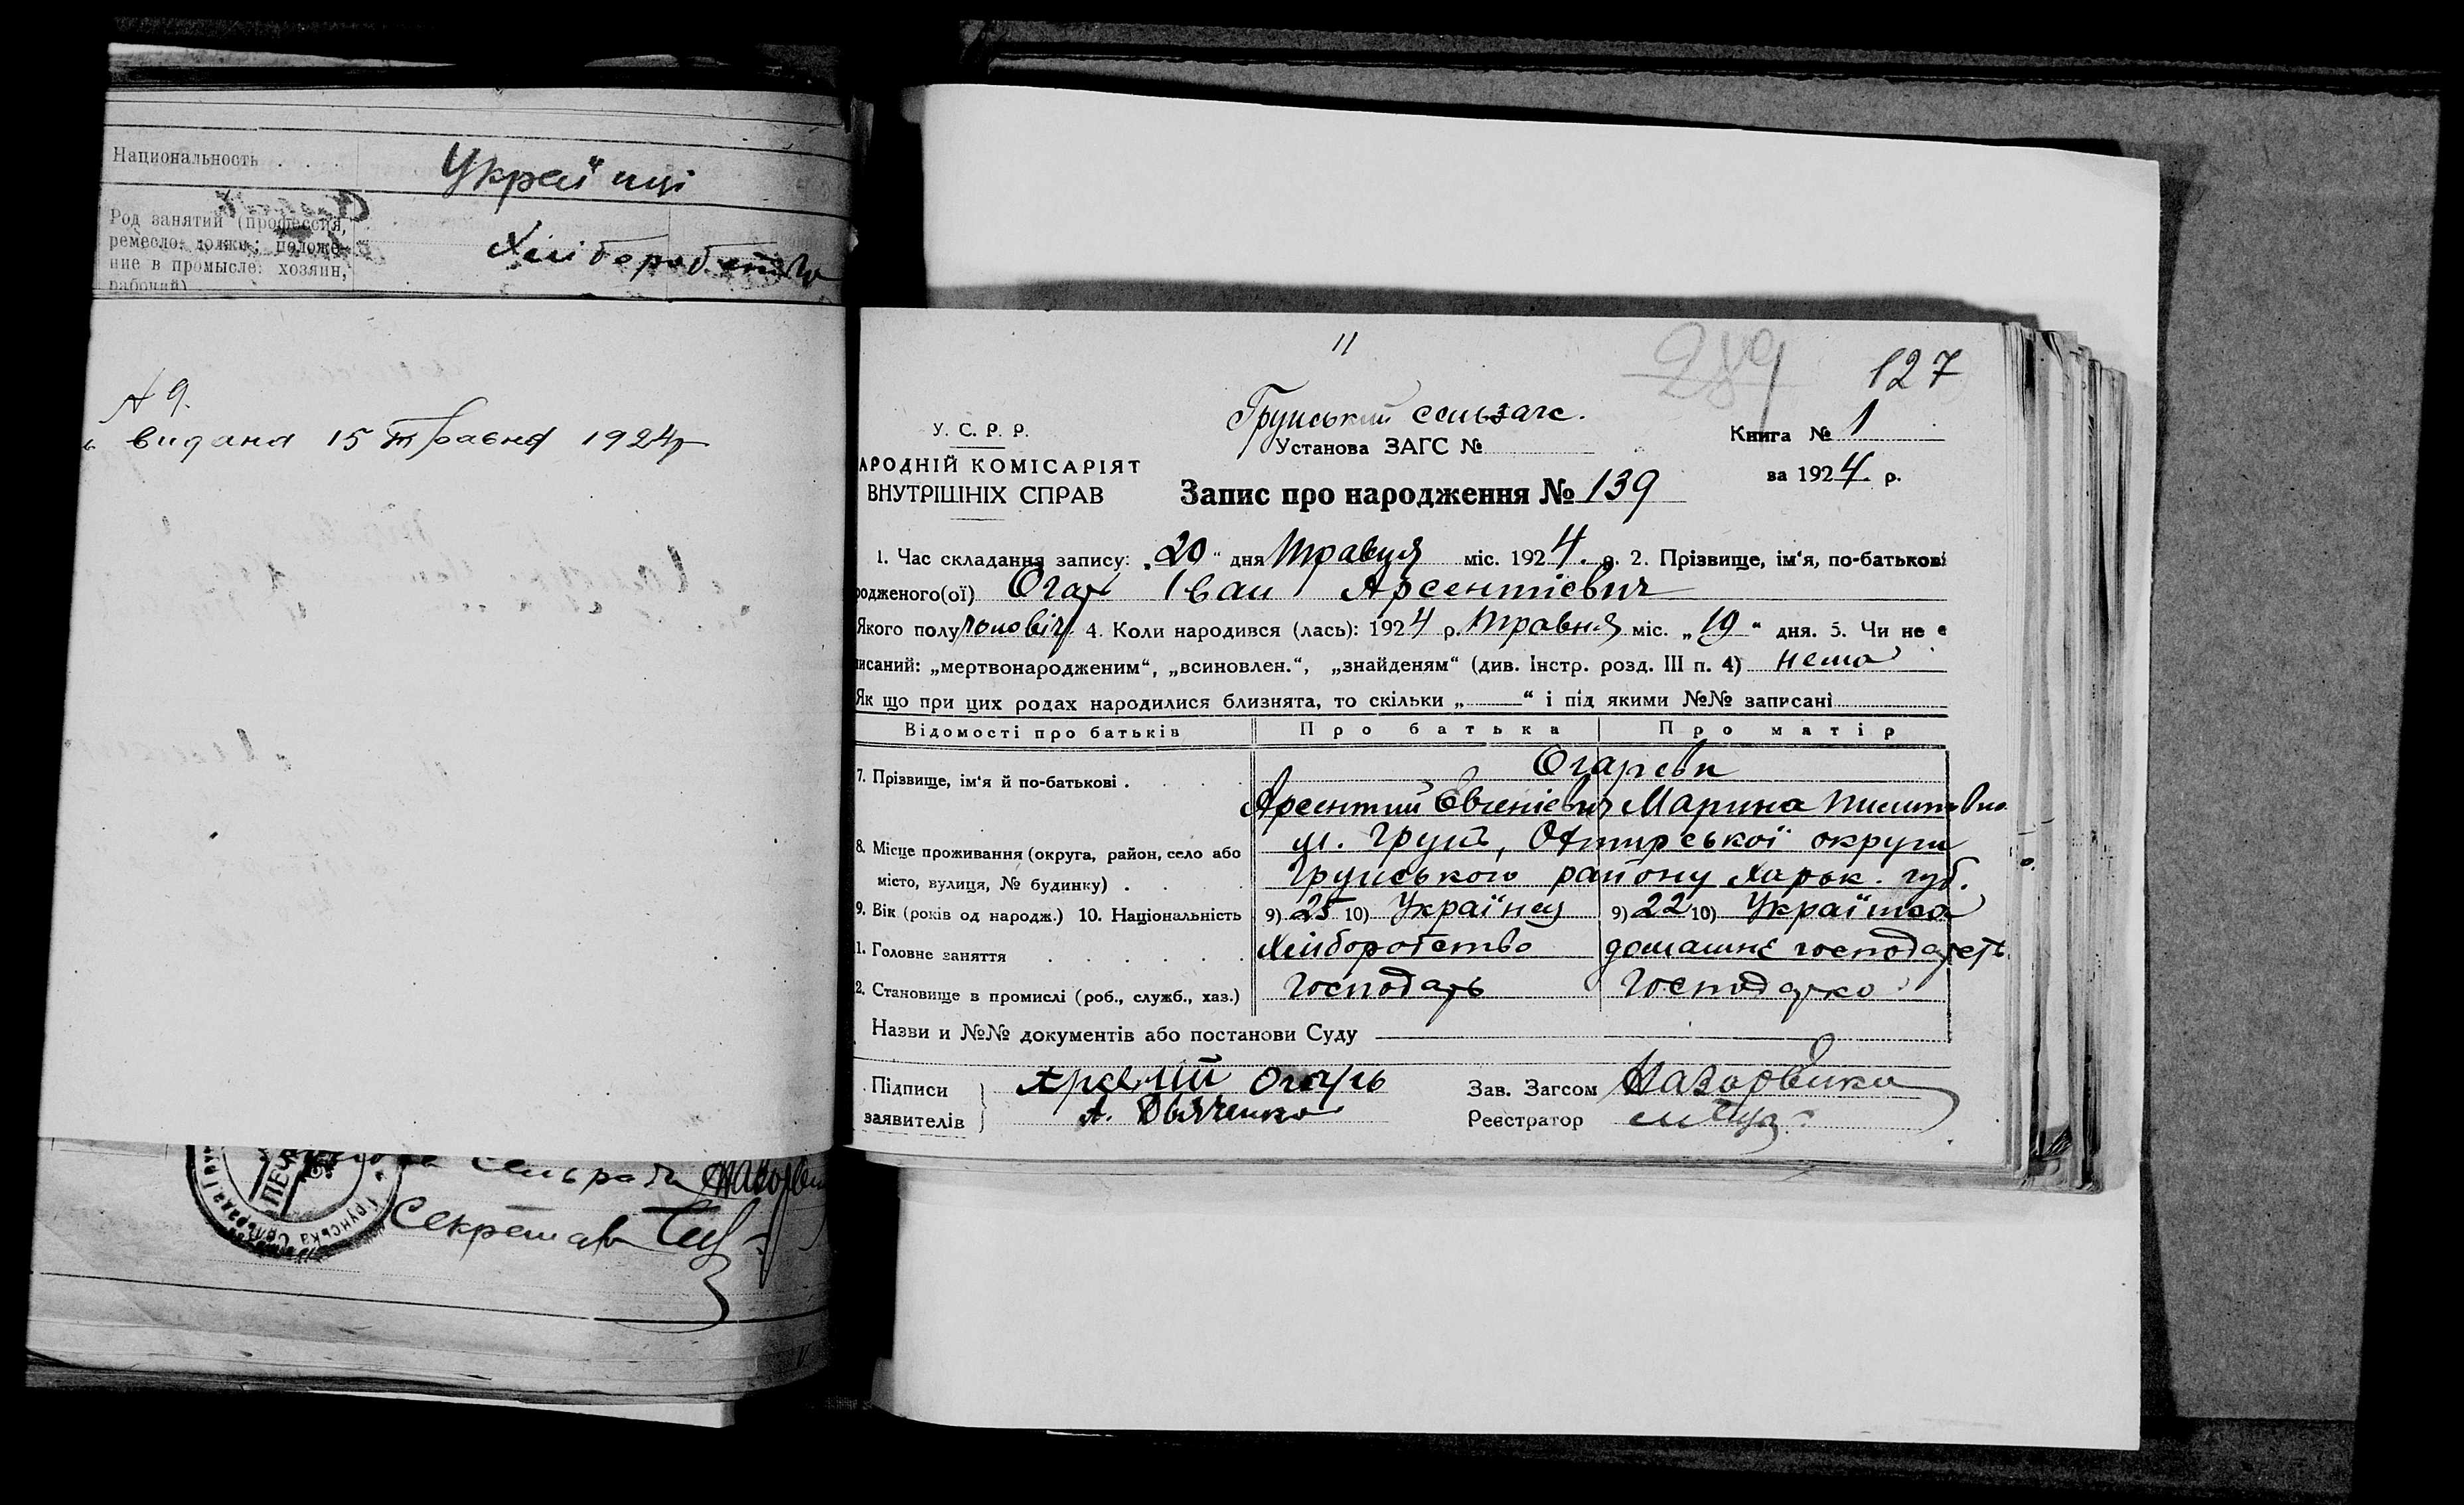 Национальность . . .
Українці
Род занятий (профессия,
ремесло: должн.; положе-
ние в промысле: хозяин,
рабочий)
Хліборобство
№ 9.
видана 15 травня 1924р
сельради
Секретар
Грунська Сільрада
11
289
127
Грунський сельзагс.
У. С. Р. Р.
Установа ЗАГС №
Книга № 1
АРОДНІЙ КОМІСАРІЯТ
ВНУТРІШНІХ СПРАВ
за 1924 р.
Запис про народження № 139
1. Час складання запису: „20“ дня травня міс. 1924. р. 2. Прізвище, ім‘я, по-батькові
родженого(ої) Огарь Іван Арсентієвич
Якого полу чоловіч. 4. Коли народився (лась): 1924 р. травня міс. „19“ дня. 5. Чи не є
писаний: „мертвонародженим“, „всиновлен.“, „знайденям“ (див. Інстр. розд. III п. 4) нема
Як що при цих родах народилися близнята, то скільки „——“ і під якими №№ записані
Відомості про батьків Про батька Про матір
7. Прізвище, ім‘я й по-батькові .
Огарєви
Арсентий Євгенієвич Марина
8. Місце проживання (округа, район, село або
місто, вулиця, № будинку) .
м. Грунь, Охтирської округи
Грунського району Харьк. губ.
9. Вік (років од народж.) 10. Національність 9) 25 10) Українец 9) 22 10) Українка
1. Головне заняття Хліборобство домашнє господарсть.
2. Становище в промислі (роб., служб., хаз.) господарь господарка
Назви и №№ документів або постанови Суду
Підписи
заявителів
Арсентий Огарь
А. Дьяченко
Зав. Загсом
Реєстратор